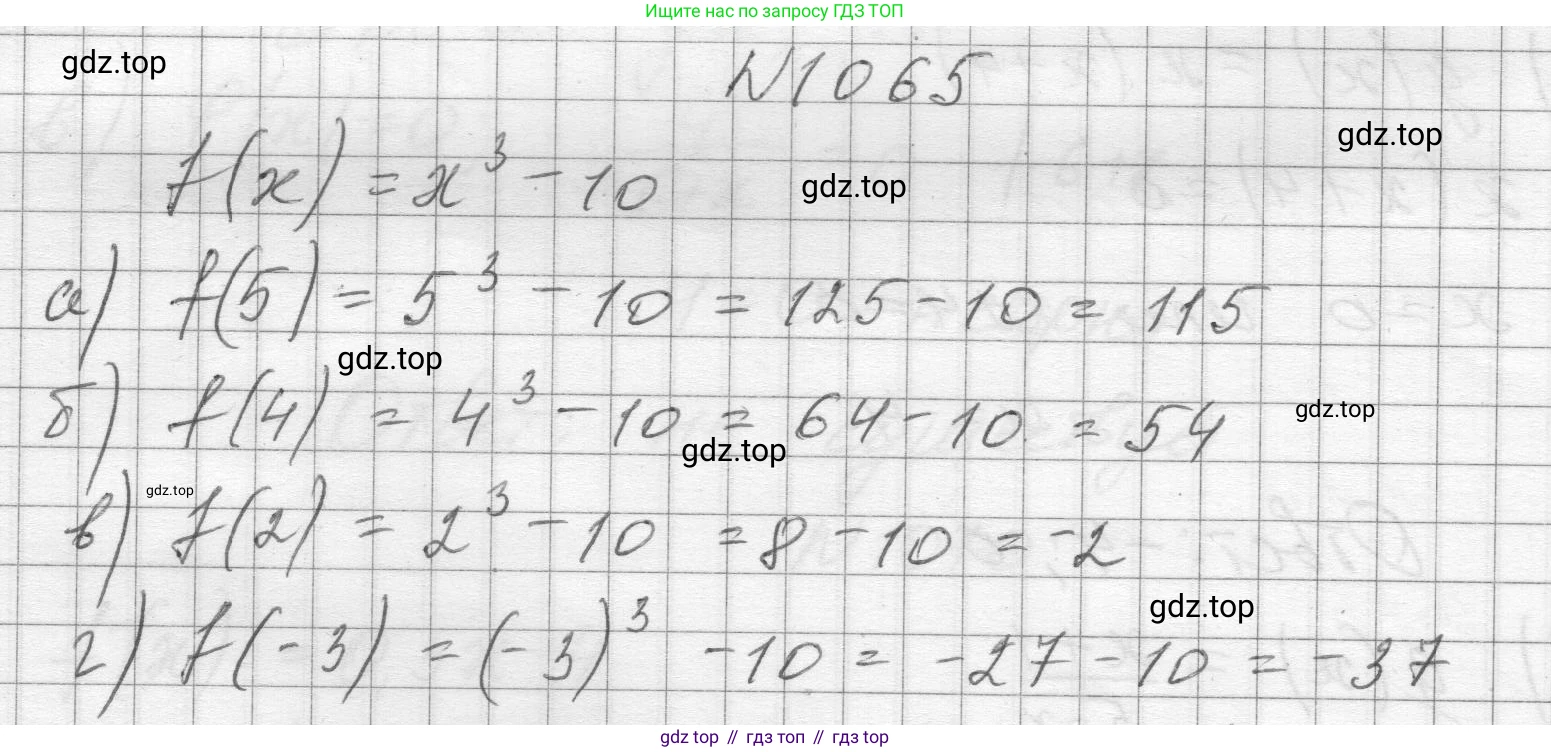 Ищите нас по запросу ГДЗ ТОП
gdz.top
N1065
gdz.top
f(x) = x³ - 10
gdz.top
а) f(5) = 5³ - 10 = 125 - 10 = 115
gdz.top
б) f(4) = 4³ - 10 = 64 - 10 = 54
gdz.top
gdz.top
gdz.top
в) f(2) = 2³ - 10 = 8 - 10 = -2
gdz.top
г) f(-3) = (-3)³ - 10 = -27 - 10 = -37
gdz top // гдз топ // гдз top